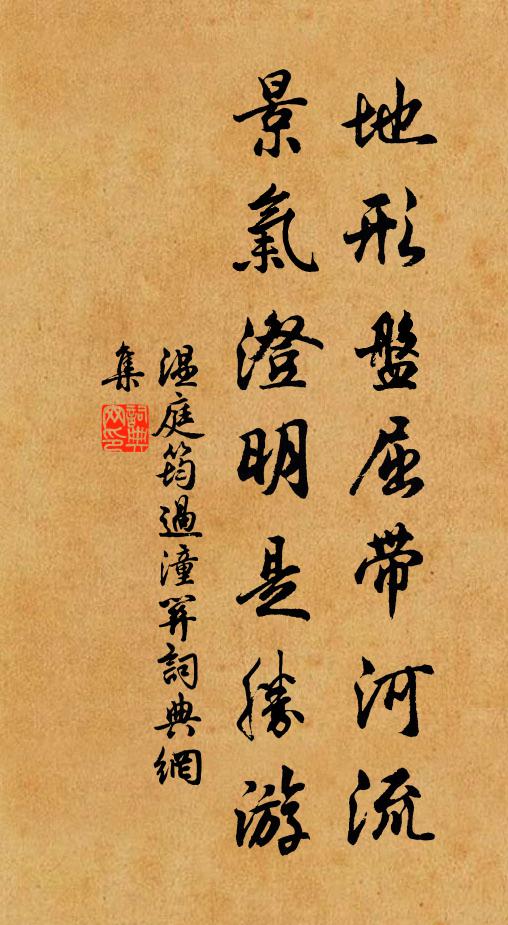 地形盤屈帶河流
景氣澄明是勝游
温庭筠過潼關詞典網
集
詞典網印